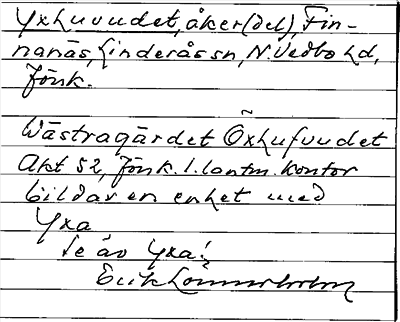 Yxhuvudet, åker(del), Fin-
nanäs, Linderås sn, N. Vedbo hd,
Jönk.
Wästragärdet Öxhufvudet
Akt 52, Jönk. l. lantm. kontor
bildar en enhet med
Yxa
Se äv Yxa!
Erik Lönnerholm